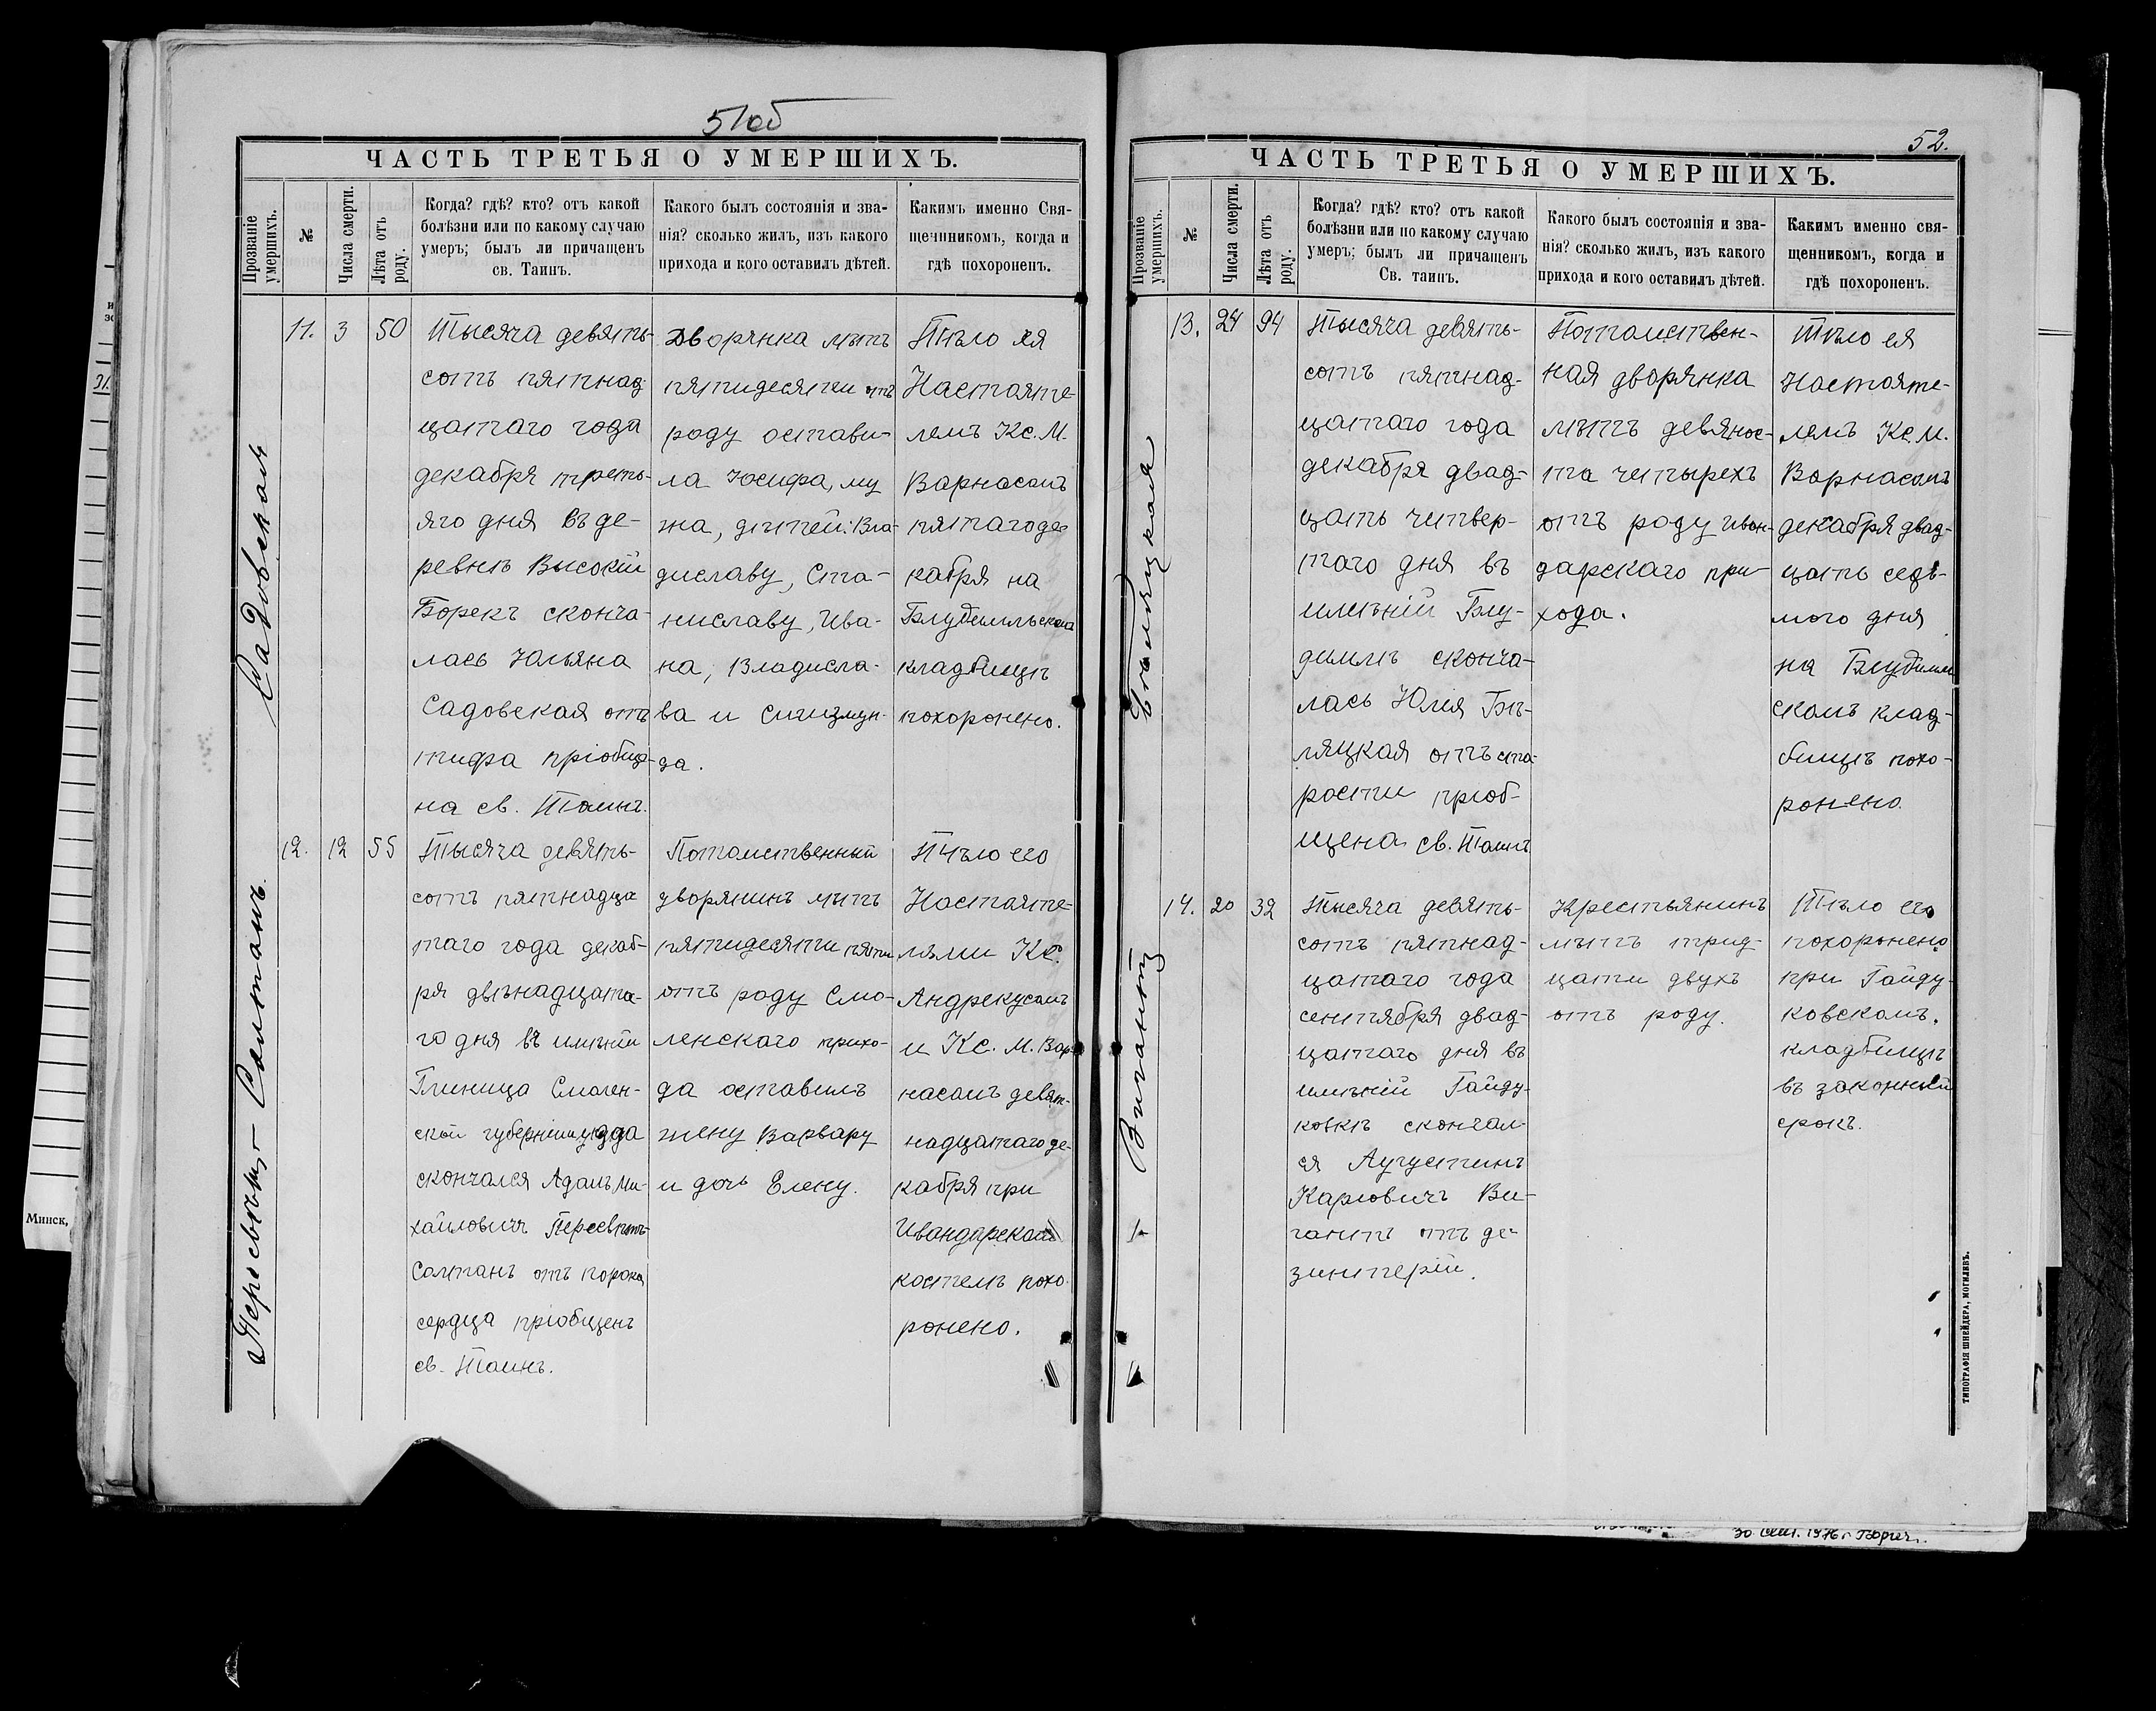 51об
ЧАСТЬ ТРЕТЬЯ О УМЕРШИХЪ.
Прозваніе умершихъ.
№
Числа смерти.
Лѣта отъ роду.
Когда? гдѣ? кто? отъ какой
болѣзни или по какому случаю
умеръ; былъ ли причащенъ
св. Таинъ.
Какого былъ состоянія и зва-
нія? сколько жилъ, изъ какого
прихода и кого оставилъ дѣтей.
Какимъ именно Свя-
щенникомъ, когда и
гдѣ похороненъ.
Садовская
11.
3
50
Тысяча девять-
сотъ пятнад-
цатаго года
декабря треть-
яго дня въ де-
ревнѣ Высокій
Борекъ сконча-
лась Юльяна
Садовская отъ
тифа пріобще-
на св. Таинъ.
Дворянка лѣтъ
пятидесяти отъ
роду остави-
ла Іосифа, му
жа, дѣтей: Вла-
диславу, Ста-
ниславу, Ива-
на, Владисла-
ва и Сигизмун-
да.
Тѣло ея
Настояте-
лемъ Кс. М.
Варнасомъ
пятаго де-
кабря на
Блудимльскомъ
кладбищѣ
похоронено.
Пересвѣтъ-Солтанъ.
12.
12
55
Тысяча девять-
сотъ пятнадца
таго года декаб-
ря двѣнадцата-
го дня въ имѣніи
Глиница Смолен-
ской губерніи уѣзда
скончался Адамъ Ми-
хайловичъ Пересвѣтъ-
Солтанъ отъ порока
сердца пріобщенъ
св. Таинъ.
Потомственный
дворянинъ лѣтъ
пятидесяти пяти
отъ роду Смо-
ленскаго прихо-
да оставилъ
жену Варвару
и дочь Елену.
Тѣло его
Настояте-
лями Кс.
Андрекусомъ
и Кс. М. Вар-
насомъ девят-
надцатаго де-
кабря при
Ивандарскомъ
костелѣ похо-
ронено.
52.
ЧАСТЬ ТРЕТЬЯ О УМЕРШИХЪ.
Прозваніе умершихъ.
№
Числа смерти.
Лѣта отъ роду.
Когда? гдѣ? кто? отъ какой
болѣзни или по какому случаю
умеръ; былъ ли причащенъ
Св. таинъ.
Какого былъ состоянія и зва-
нія? сколько жилъ, изъ какого
прихода и кого оставилъ дѣтей.
Какимъ именно свя-
щенникомъ, когда и
гдѣ похороненъ.
Бѣляцкая
13.
24
94
Тысяча девять-
сотъ пятнад-
цатаго года
декабря двад-
цать четвер-
таго дня въ
имѣніи Блу-
димлѣ сконча-
лась Юлія Бѣ-
ляцкая отъ ста-
рости пріоб-
щена св. Таинъ
Потомствен-
ная дворянка
лѣтъ девянос-
та четырехъ
отъ роду Иван-
дарскаго при-
хода.
Тѣло ея
Настояте-
лемъ Кс. М.
Варнасомъ
декабря двад-
цать седь-
мого дня
на Блудимль
скомъ клад-
бищѣ похо-
ронено.
Вигантъ
14.
20
32
Тысяча девять-
сотъ пятнад-
цатаго года
сентября двад-
цатаго дня въ
имѣніи Гайду-
ковкѣ скончал-
ся Аугустинъ
Карловичъ Ви-
гантъ отъ де-
зинтеріи.
Крестьянинъ
лѣтъ трид-
цати двухъ
отъ роду.
Тѣло его
похоронено
при Гайду-
ковскомъ
кладбищѣ
въ законный
срокъ.
ТИПОГРАФІЯ ШНЕЙДЕРА, МОГИЛЕВЪ.
Минск,